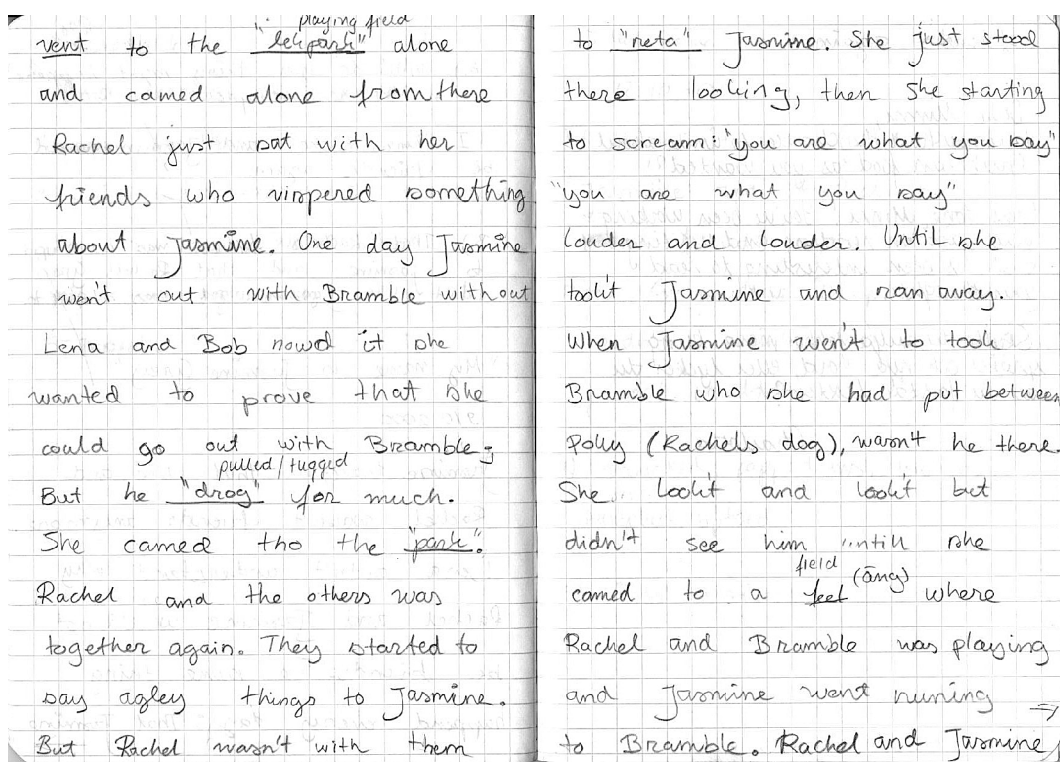 playing field
vent to the "lekpark" alone
and camed alone from there
Rachel just sat with her
friends who vispered something
about Jasmine. One day Jasmine
wen't out with Bramble without
Lena and Bob nowd it she
wanted to prove that she
could go out with Bramble;
pulled/tugged
But he "drog" for much.
She camed tho the "park".
Rachel and the others was
together again. They started to
say agley things to Jasmine.
But Rachel wasn't with them
to "reta" Jasmine. She just stood
there looking, then she starting
to scream: "you are what you say"
"you are what you say"
louder and louder. Until she
took't Jasmine and ran avay.
When Jasmine wen't to took
Bramble who she had put between
Polly (Rachels dog), wasn't he there.
She look't and look't but
didn't see him untill she
field
camed to a feet (äng) where
Rachel and Bramble was playing
and Jasmine went runing
to Bramble. Rachel and Jasmine